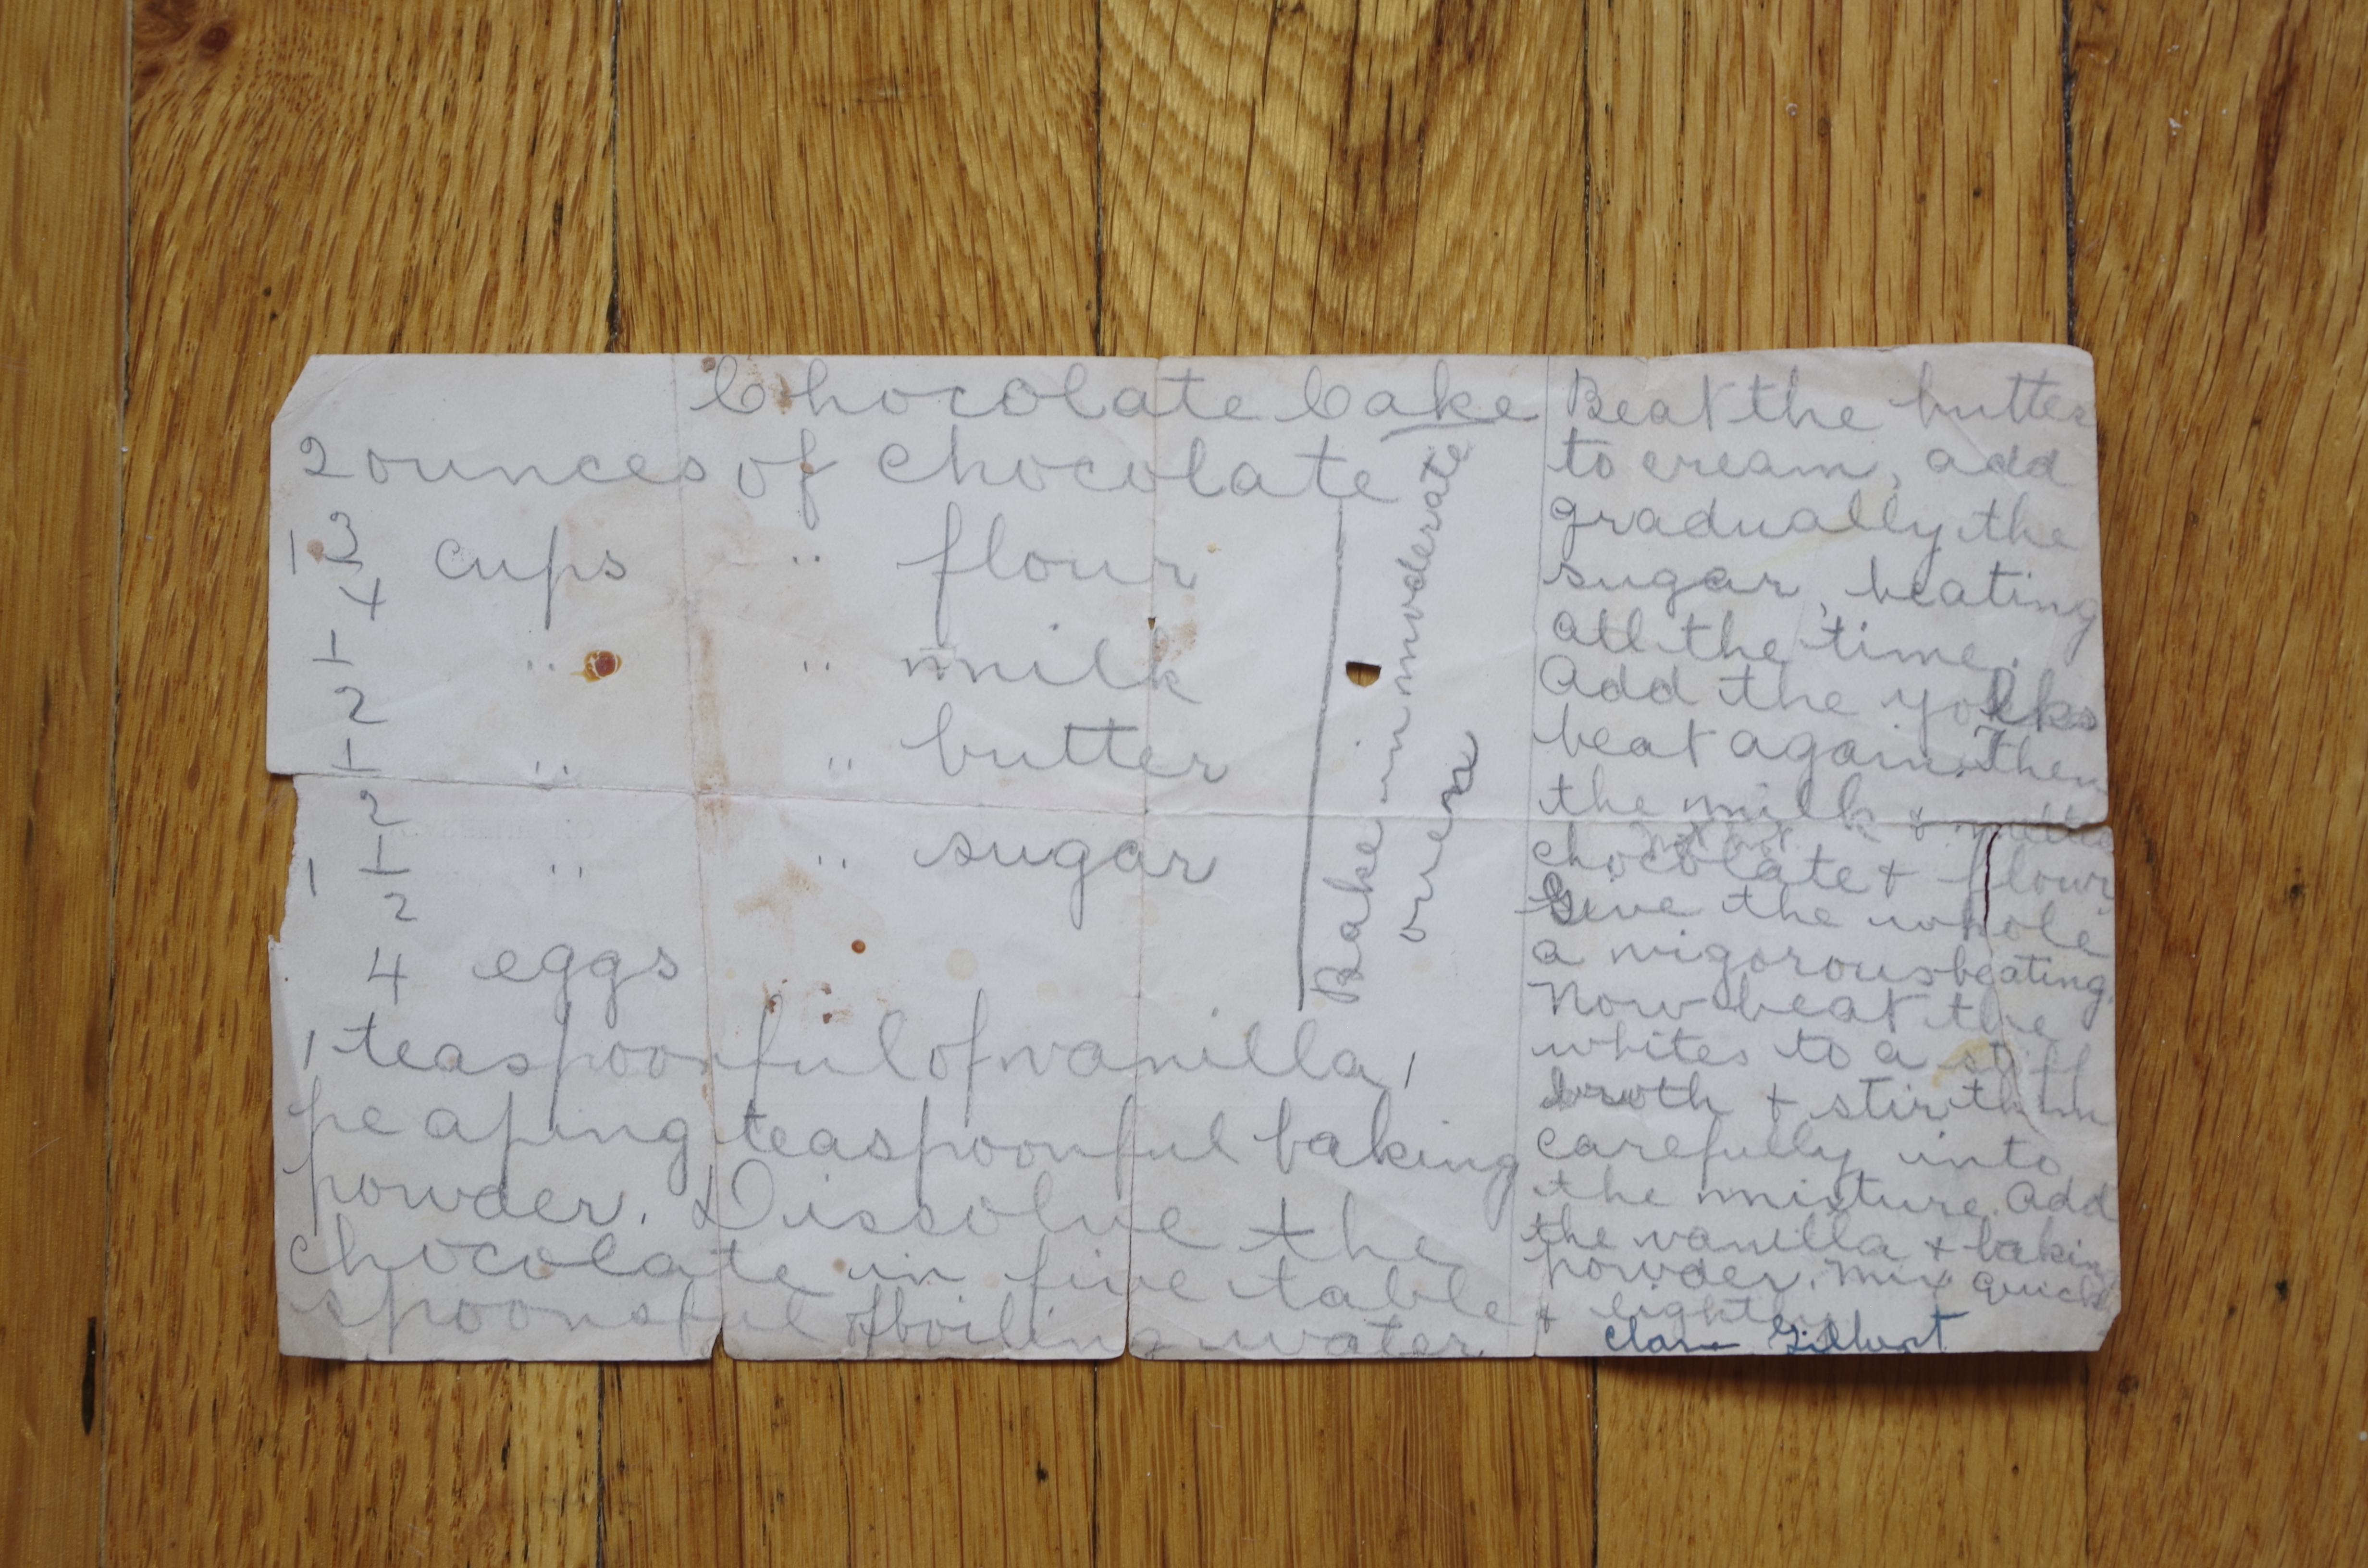 Chocolate Cake
2 ounces of chocolate
1 3/4 cups " flour
1/2 " " milk
1/2 " " butter
1 1/2 " " sugar
4 eggs
1 teaspoonful of vanilla, 1
heaping teaspoonful baking
powder. Dissolve the
chocolate in five table
spoonsful of boiling water
Bake in moderate
oven
Beat the butter
to cream, add
gradually the
sugar, beating
all the time.
Add the yolks
beat again. Then
the milk &
chocolate + flour
Give the whole
a vigorous beating.
Now beat the
whites to a stiff
froth + stir them
carefully into
the mixture. Add
the vanilla + bakin
powder. Mix quick
& lightly
Clara Gilbert